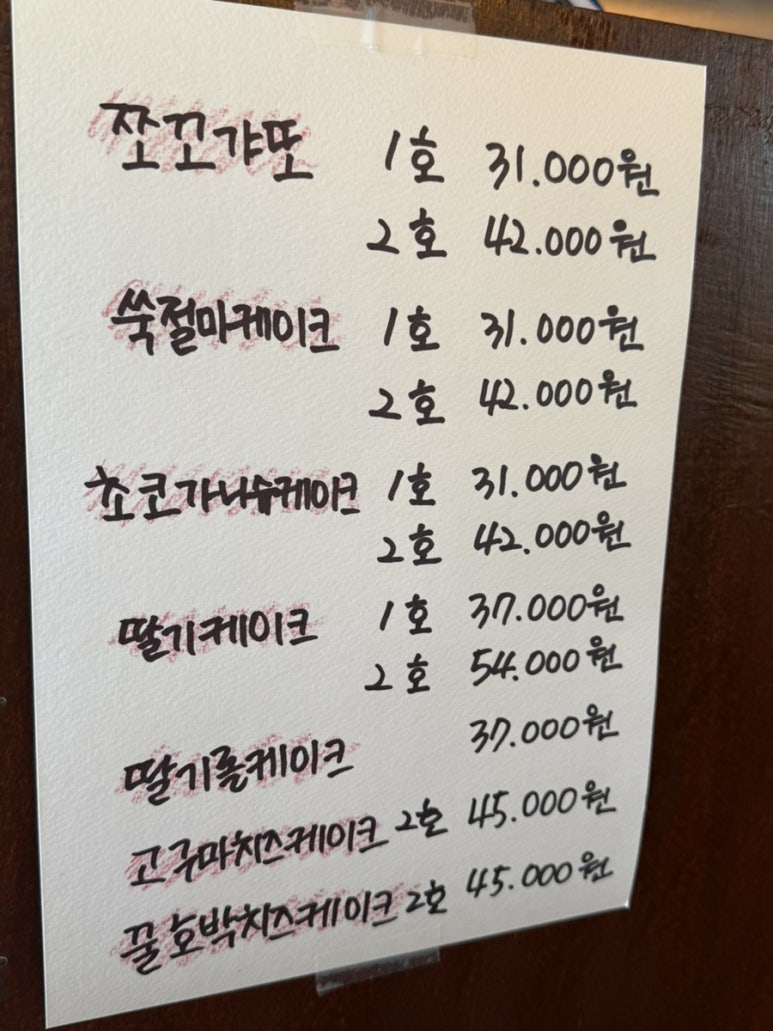 쪼꼬갸또 1호 31.000원
2호 42.000원
쑥절미케이크 1호 31.000원
2호 42.000원
쵸코가나슈케이크 1호 31.000원
2호 42.000원
딸기케이크 1호 37.000원
2호 54.000원
딸기롤케이크 37.000원
고구마치즈케이크 2호 45.000원
꿀호박치즈케이크 2호 45.000원